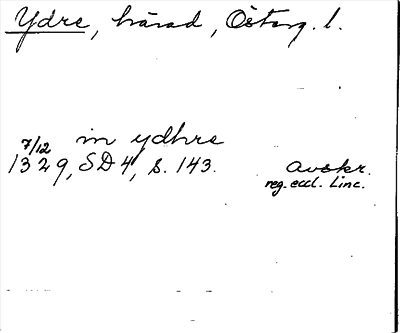 Ydre, härad, Österg. l.
in ydhre
7/12
1329, SD 4, s. 143. Avskr.
reg. eccl. Linc.